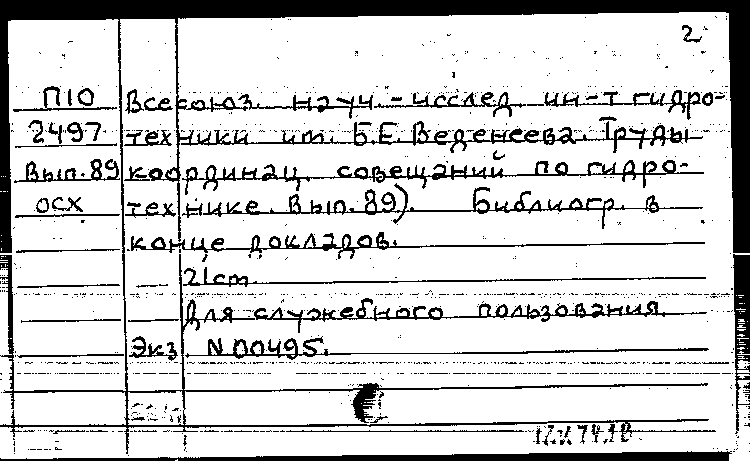 2
П10 Всесоюз. науч.-исслед. ин-т гидро-
2497 техники им. Б.Е. Веденеева. Труды
Вып.89 координац. совещаний по гидро-
осх технике. Вып. 89). Библиогр. в
конце докладов.
21cm.
Для служебного пользования.
Экз. N 00495.